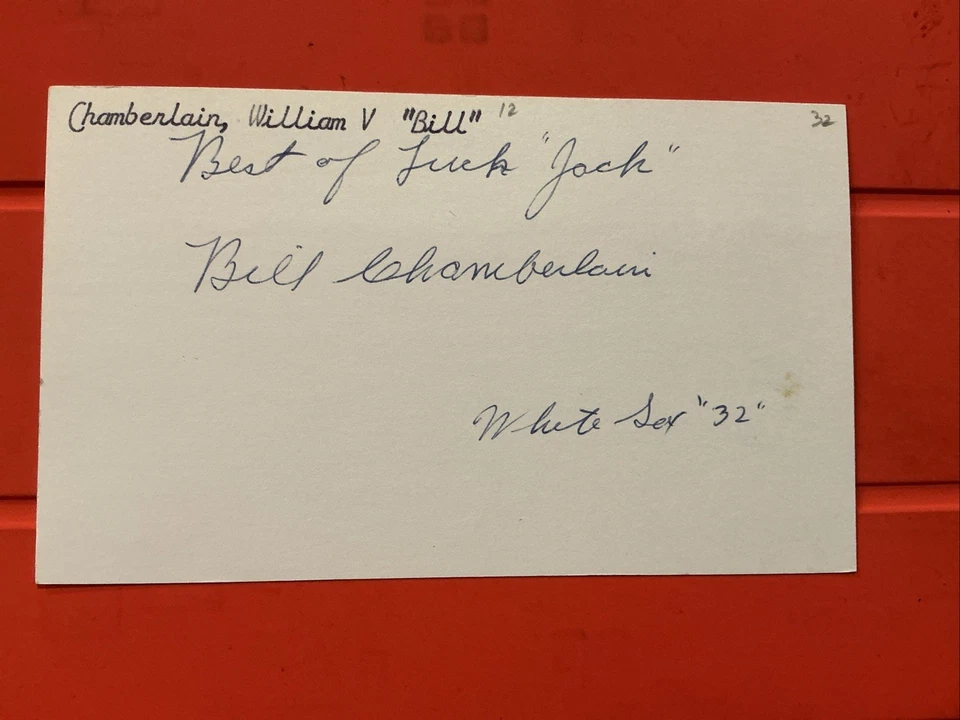 Chamberlain, William V "Bill" 12 32
Best of Luck "Jack"
Bill Chamberlain
White Sox "32"